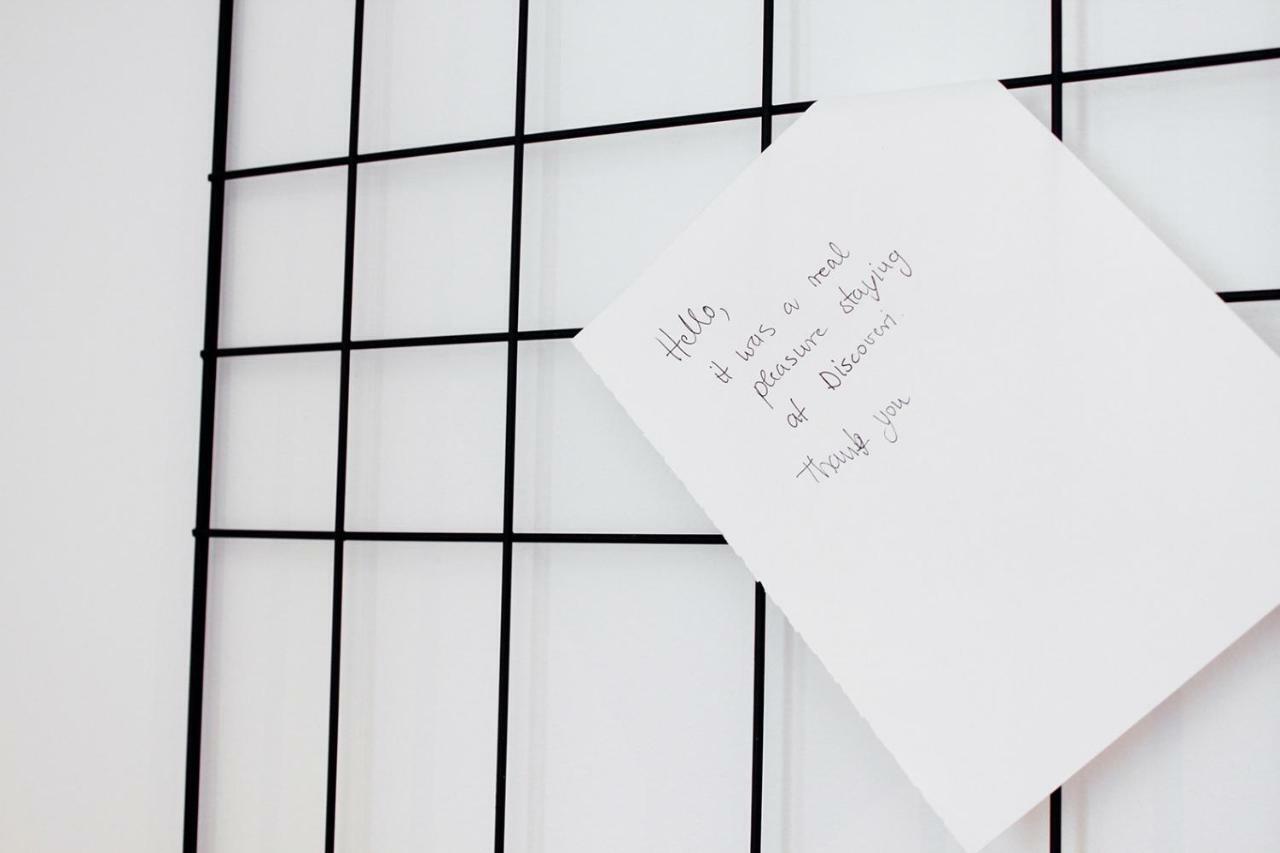 Hello,
it was a real
pleasure staying
at Discoveri.
Thank you